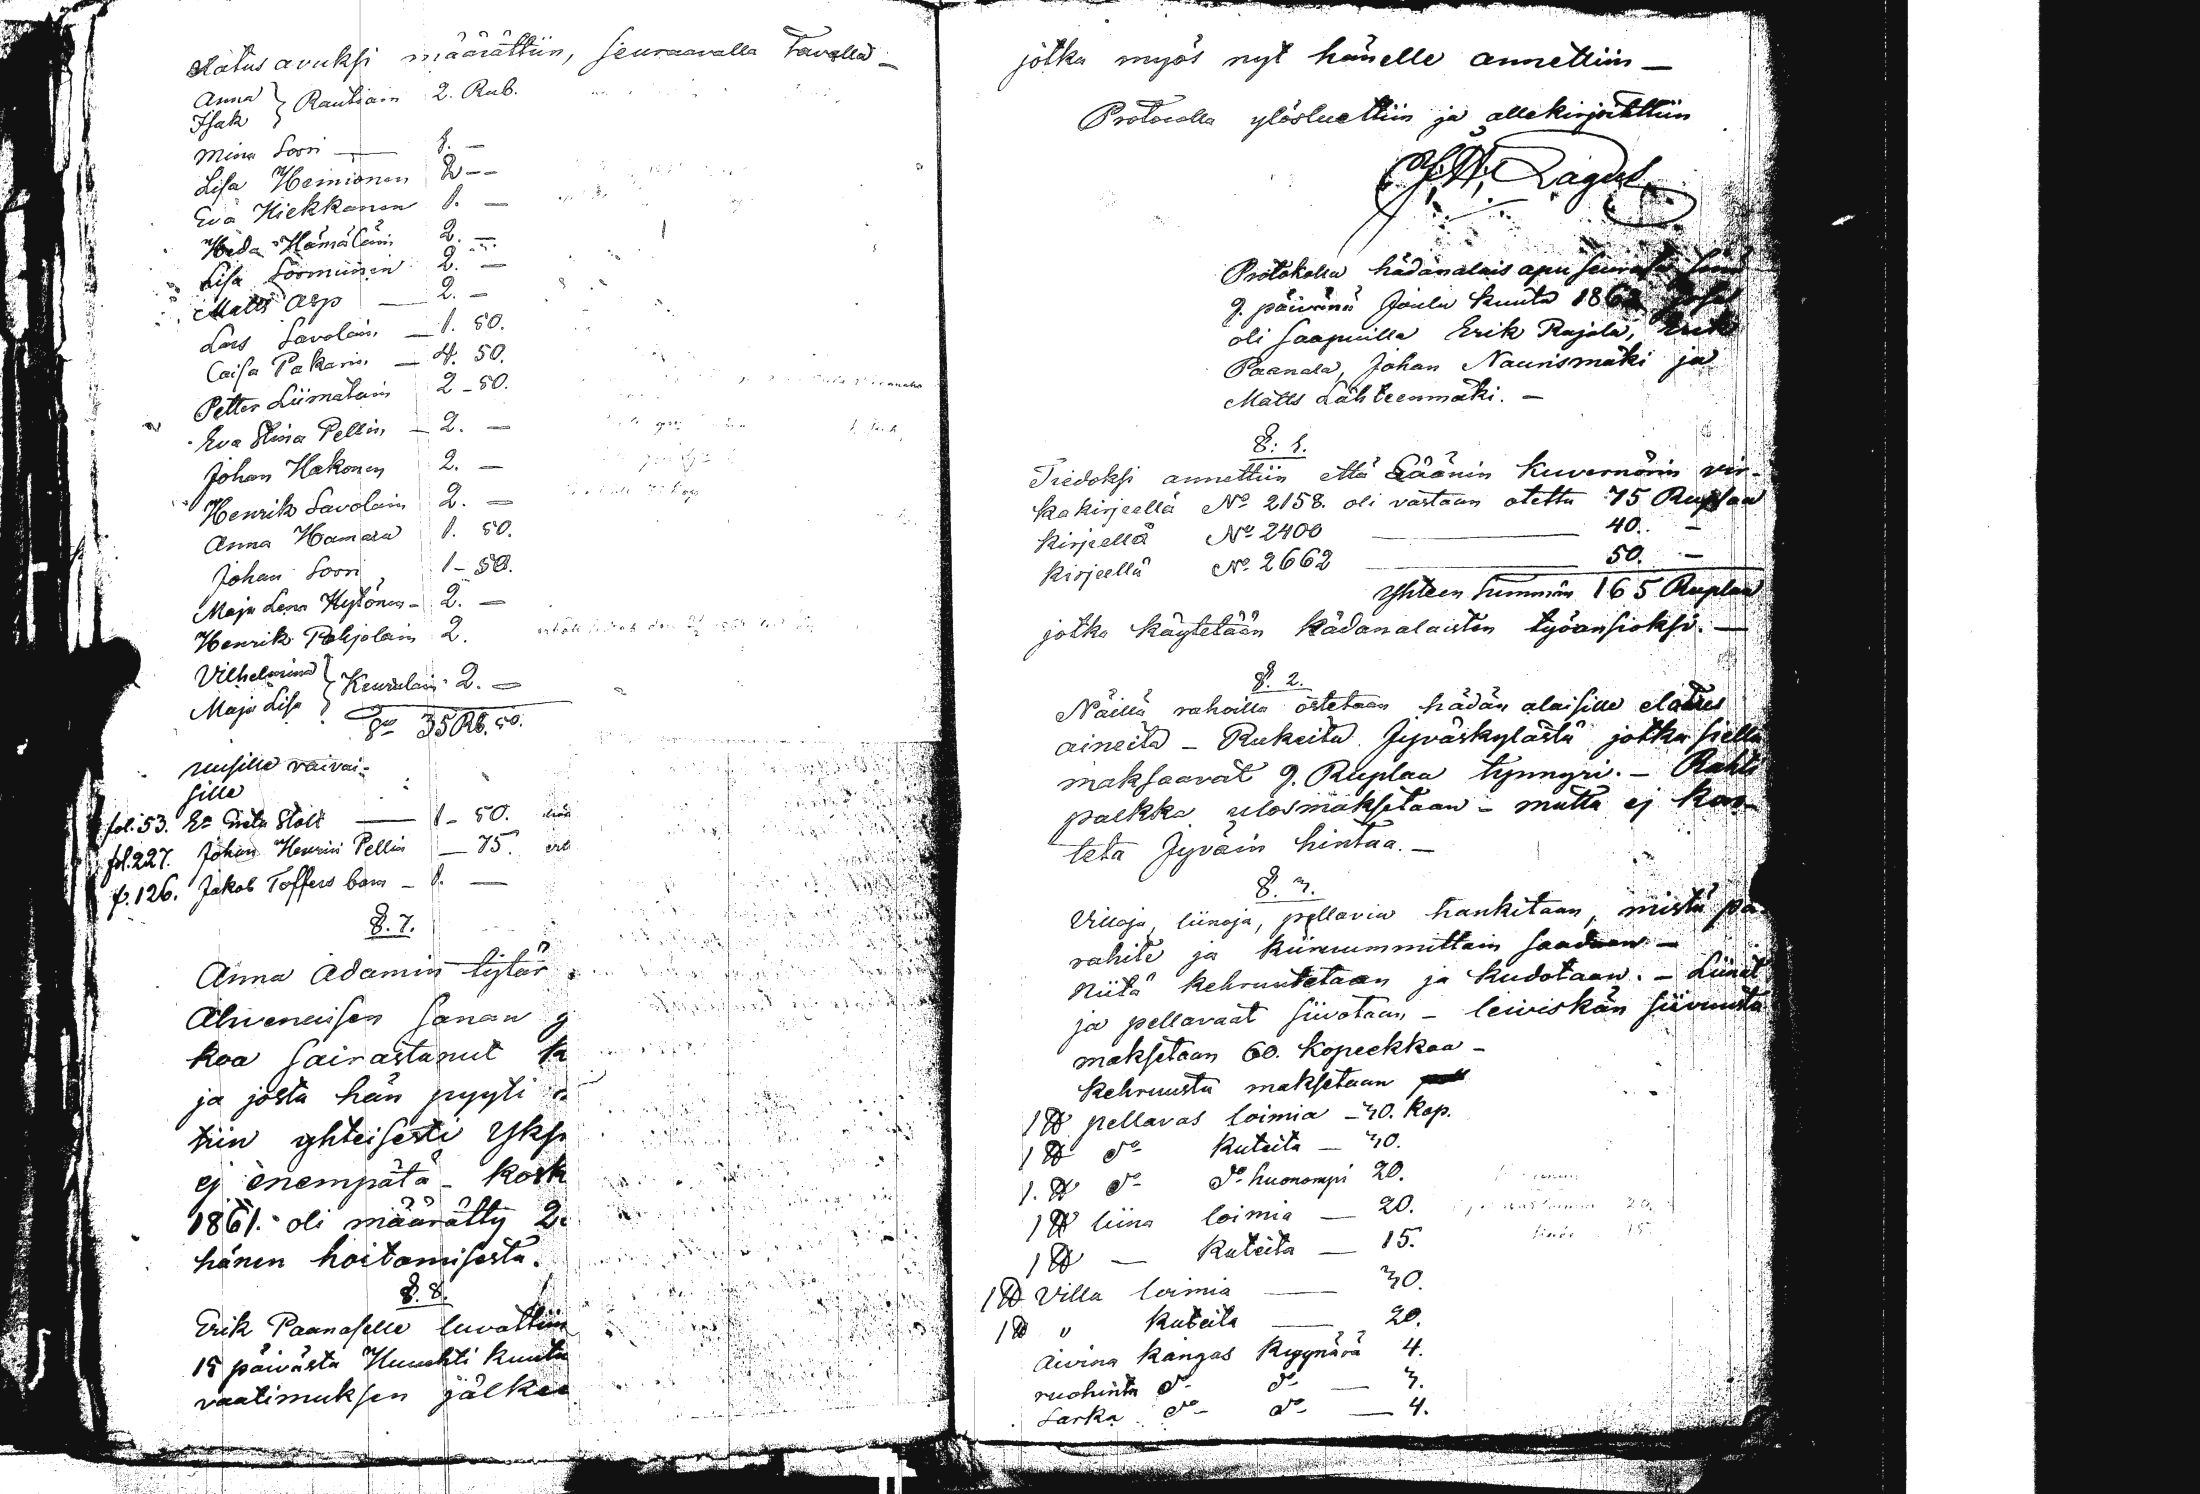 elatus avuksi määrättiin, seuraavalla tavalla –
Anna } Rautiain 2. Rub.
Isak
Mina Soon — 1. –
Lisa Heiniönen 2 – –
Eva Kiekkonen 1. –
Heda Hämäläin 2. –
Lisa Sormuinin 2. –
Matts Asp — 2. –
Lars Savolain — 1. 50.
Caisa Pakarin — 4. 50.
Petter Liimatain 2 – 50.
Eva Stina Pellin – 2. –
Johan Hakonen 2. –
Henrik Savolain 2. –
Anna Hamara 1. 50.
Johan Soon 1 – 50.
Maja Lena Kytönen – 2. –
Henrik Pohjolain 2.
Vilhelmina } Keuralain 2. –
Maja Lisa
Sa 35 Rb. 50.
uusille vaivai-
sille
fol. 53. Ea Greta Stolt — 1 – 50.
fol. 227. Johan Henrin Pellin — 75.
f. 126. Jakob Toffers barn – 1. —
§. 7.
Anna Adamin tytär
Ahvenaisen sanan
koa sairastanut
ja josta hän pyyti
tiin yhteisesti yks
ej enempätä – kosk
1861. oli määrätty 2
hänen hoitamisesta.
§. 8.
Erik Paanaselle luvattiin
15 päivästä Huuhti kuuta
vaatimuksen jälkee
jotka myös nyt hänelle annettiin –
Protocolla ylösluettiin ja allekirjoitettiin
Lagus
Protokolla hädänalais apu seurasta
9. päivänä Joulu kuuta 1862
oli saapuilla Erik Rajala, Erik
Paanala, Johan Naurismäki ja
Matts Lähteenmäki. –
§. 1.
Tiedoksi annettiin että Läänin kuvernörin vir-
kakirjeellä No 2158. oli vastaan otettu 75 Ruplaa
kirjeellä No 2400 — 40. –
kirjeellä No 2662 — 50. –
yhteen summiin 165 Ruplaa
jotka käytetään hädanalaisten työansioksi. –
§. 2.
Näillä rahoilla ostetaan hädän alaisille elatus
aineita – Rukeita Jyväskylästä jotka siellä
maksaavat 9. Ruplaa tynnyri. – Rahti
palkka ulosmaksetaan – mutta ej koro-
teta Jyväin hintaa. –
§. 3.
Villoja, liinoja, pellavia hankitaan, mistä pa-
rahite ja kiiruummittain saadaan –
Niitä kehruutetaan ja kudotaan. – Liinat
ja pellavaat siivotaan – leiviskän siivuusta
maksetaan 60. kopeekkaa –
kehruusta maksetaan
1 ℔ pellavas loimia – 30. Kop.
1 ℔ do kuteita – 30.
1. ℔ do do huonompi 20.
1 ℔ liina loimia — 20.
1 ℔ — kuteita — 15.
1 ℔ Villa loimia — 30.
1 ℔ " kuteita — 20.
Aivina kangas Kyynärä 4.
ruohinta do do — 3.
Sarka do do — 4.